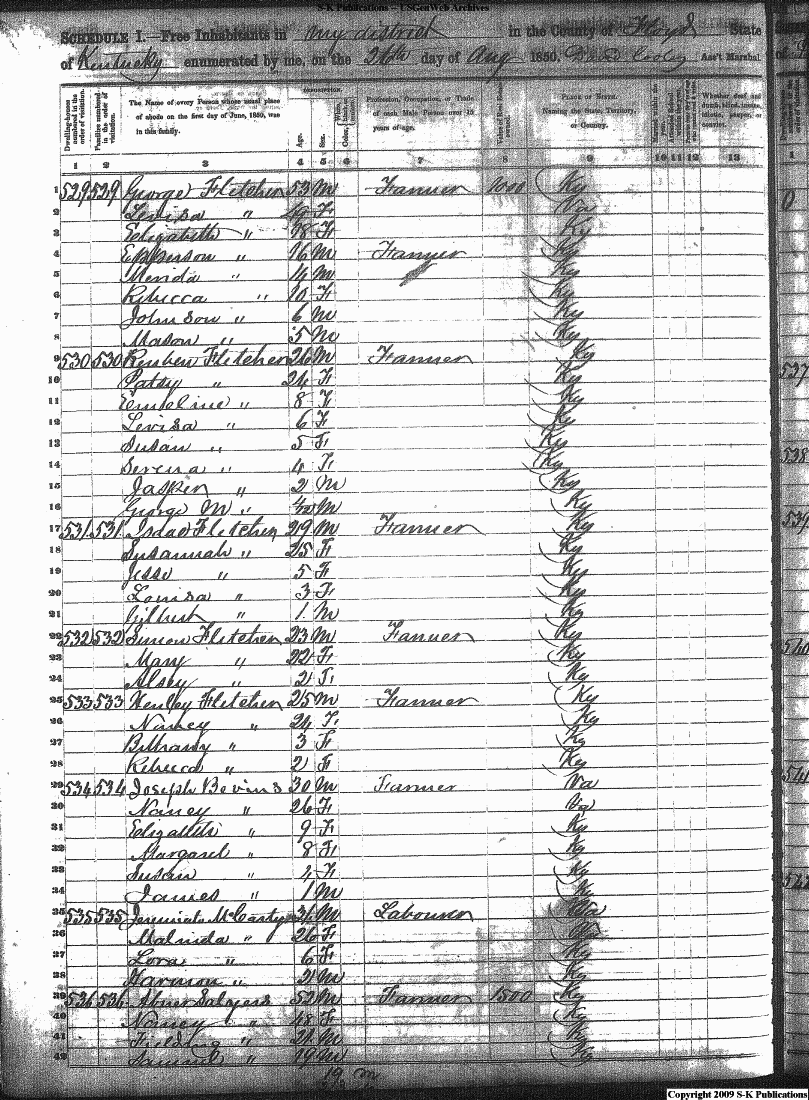 S-K Publications - USGenWeb Archives
SCHEDULE I.—Free Inhabitants in my district in the County of Floyd State
of Kentucky enumerated by me, on the 26th day of Aug 1850. Cooley Ass't Marshal
Dwelling-houses numbered in the order of visitation.
Families numbered in the order of visitation.
The Name of every Person whose usual place of abode on the first day of June, 1850, was in this family.
DESCRIPTION.
Age.
Sex.
Profession, Occupation, or Trade of each Male Person over 15 years of age.
Value of Real Estate owned.
PLACE OF BIRTH. Naming the State, Territory, or Country.
Whether deaf and dumb, blind, insane, idiotic, pauper, or convict.
1 2 3 4 5 6 7 8 9 10 11 12 13
1 529 529 George Fletcher 53 M Farmer 1000 Ky
2 Levisa " 49 F Va
3 Elizabeth " 18 F Ky
4 " 16 M Farmer Ky
5 Merida " 14 M Ky
6 Rebecca " 10 F Ky
7 Johnson " 6 M Ky
8 Mason " 5 M Ky
9 530 530 Reuben Fletcher 26 M Farmer Ky
10 Patsy " 24 F Ky
11 Emeline " 8 F Ky
12 Levisa " 6 F Ky
13 Susan " 5 F Ky
14 Serena " 4 F Ky
15 Jasper " 2 M Ky
16 George M " M Ky
17 531 531 Isaac Fletcher 29 M Farmer Ky
18 Susannah " 25 F Ky
19 Jesse " 5 F Ky
20 Louisa " 3 F Ky
21 Gilbert " 1 M Ky
22 532 532 Simon Fletcher 23 M Farmer Ky
23 Mary " 22 F Ky
24 Alsey " 2 F Ky
25 533 533 Henley Fletcher 25 M Farmer Ky
26 Nancy " 24 F Ky
27 Bethany " 3 F Ky
28 Rebecca " 2 F Ky
29 534 534 Joseph Bevins 30 M Farmer Va
30 Nancy " 26 F Va
31 Elizabeth " 9 F Ky
32 Margaret " 8 F Ky
33 Susan " 4 F Ky
34 James " 1 M Ky
35 535 535 Jeremiah McCarty 31 M Labourer Va
36 Malinda " 26 F Va
37 Lora " 6 F Ky
38 Harmon " 2 M Ky
39 536 536 Abner Salyers 52 M Farmer 1500 Ky
40 Nancy " 48 F Ky
41 Fielding " 21 M Ky
42 Samuel " 19 M Ky
19 m
537
538
539
540
541
Copyright 2009 S-K Publications